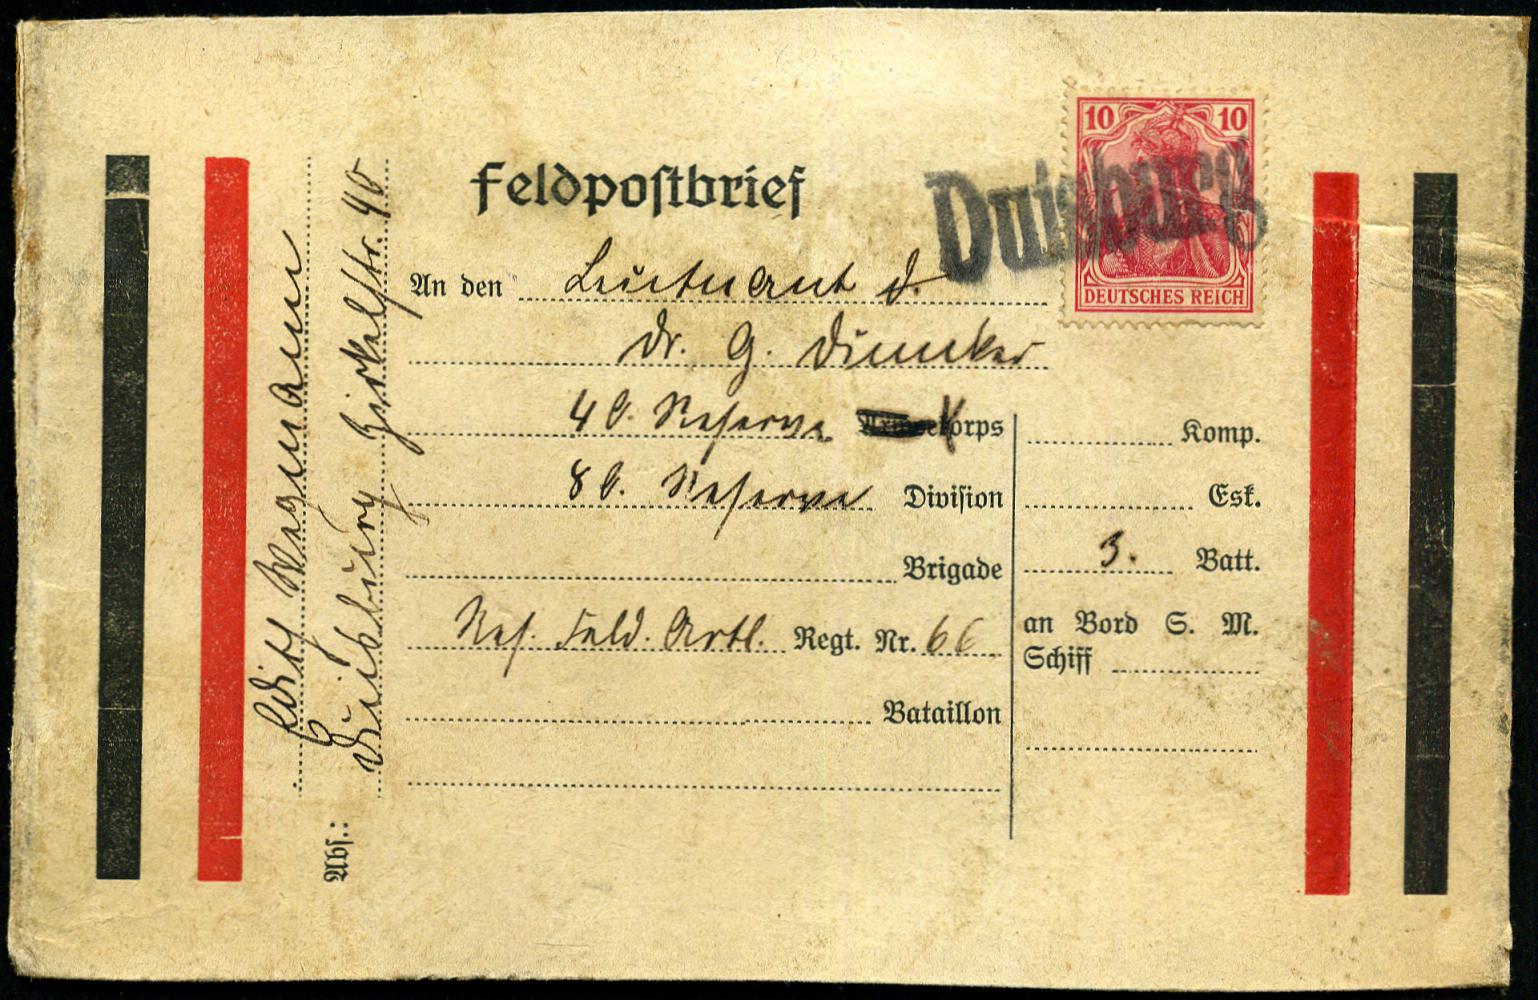 10 10
DEUTSCHES REICH
Duisburg
Feldpostbrief
An den Leutnant d.
Dr. G. Duncker
40. Reserve Korps
80. Reserve Division
Brigade
Res. Feld. Artl. Regt. Nr. 66
Bataillon
Komp.
Esk.
3. Batt.
an Bord S. M.
Schiff
Abs.:
Wegmann
Duisburg Zirkelstr. 40